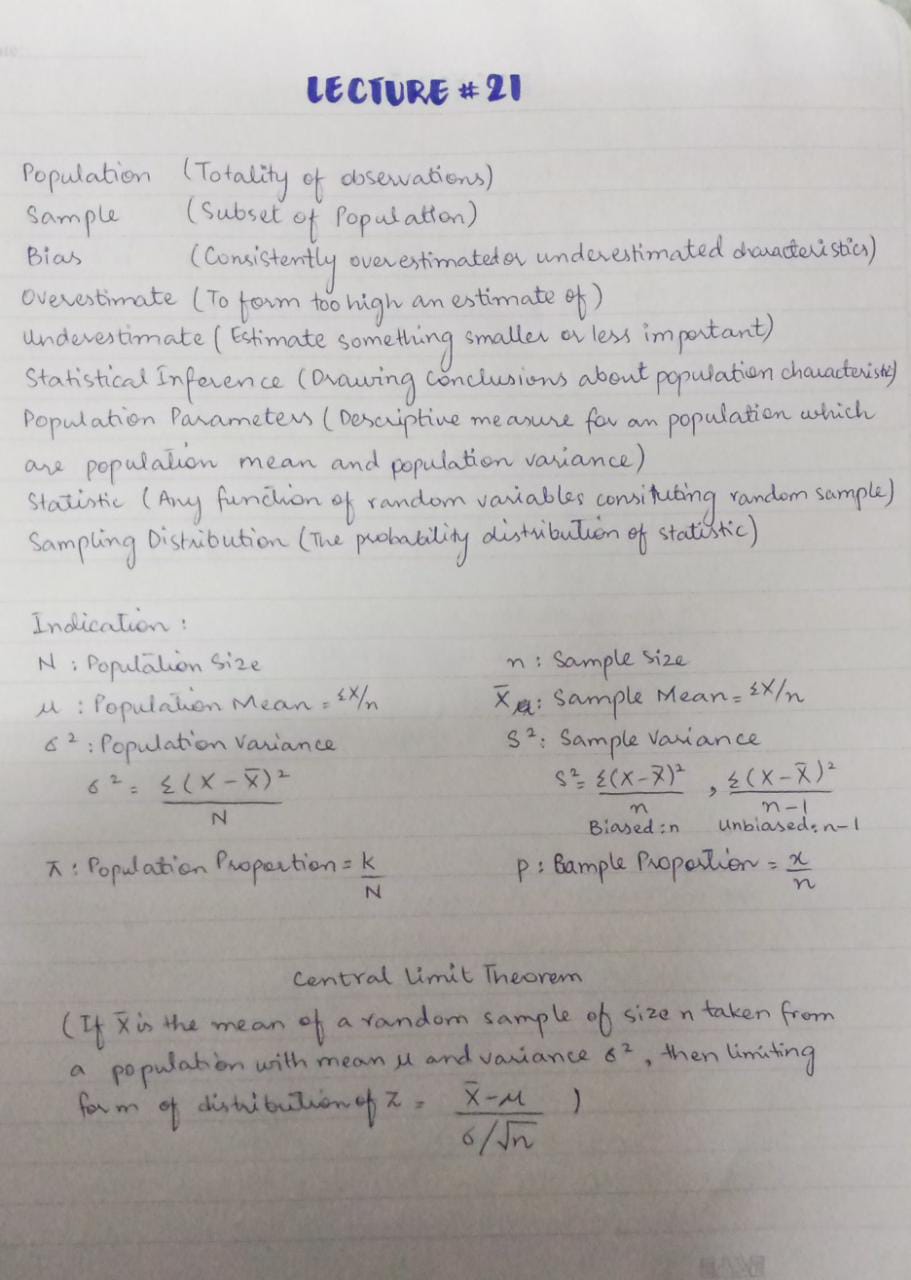 LECTURE # 21
Population (Totality of observations)
Sample (Subset of Population)
Bias (Consistently overestimated or underestimated characteristics)
Overestimate (To form too high an estimate of)
Underestimate (Estimate something smaller or less important)
Statistical Inference (Drawing conclusions about population characteristic)
Population Parameters (Descriptive measure for an population which
are population mean and population variance)
Statistic (Any function of random variables consituting random sample)
Sampling Distribution (The probability distribution of statistic)
Indication :
N : Population Size n : Sample Size
μ : Population Mean = ΣX/n X̄ : Sample Mean = ΣX/n
σ² : Population Variance S² : Sample Variance
σ² = Σ(X - X̄)² / N S² = Σ(X - X̄)² / n , Σ(X - X̄)² / n-1
Biased : n Unbiased : n-1
π : Population Proportion = k/N p : Bample Proportion = x/n
Central Limit Theorem
(If X̄ is the mean of a random sample of size n taken from
a population with mean μ and variance σ², then limiting
form of distribution of Z = X̄ - μ / σ/√n )